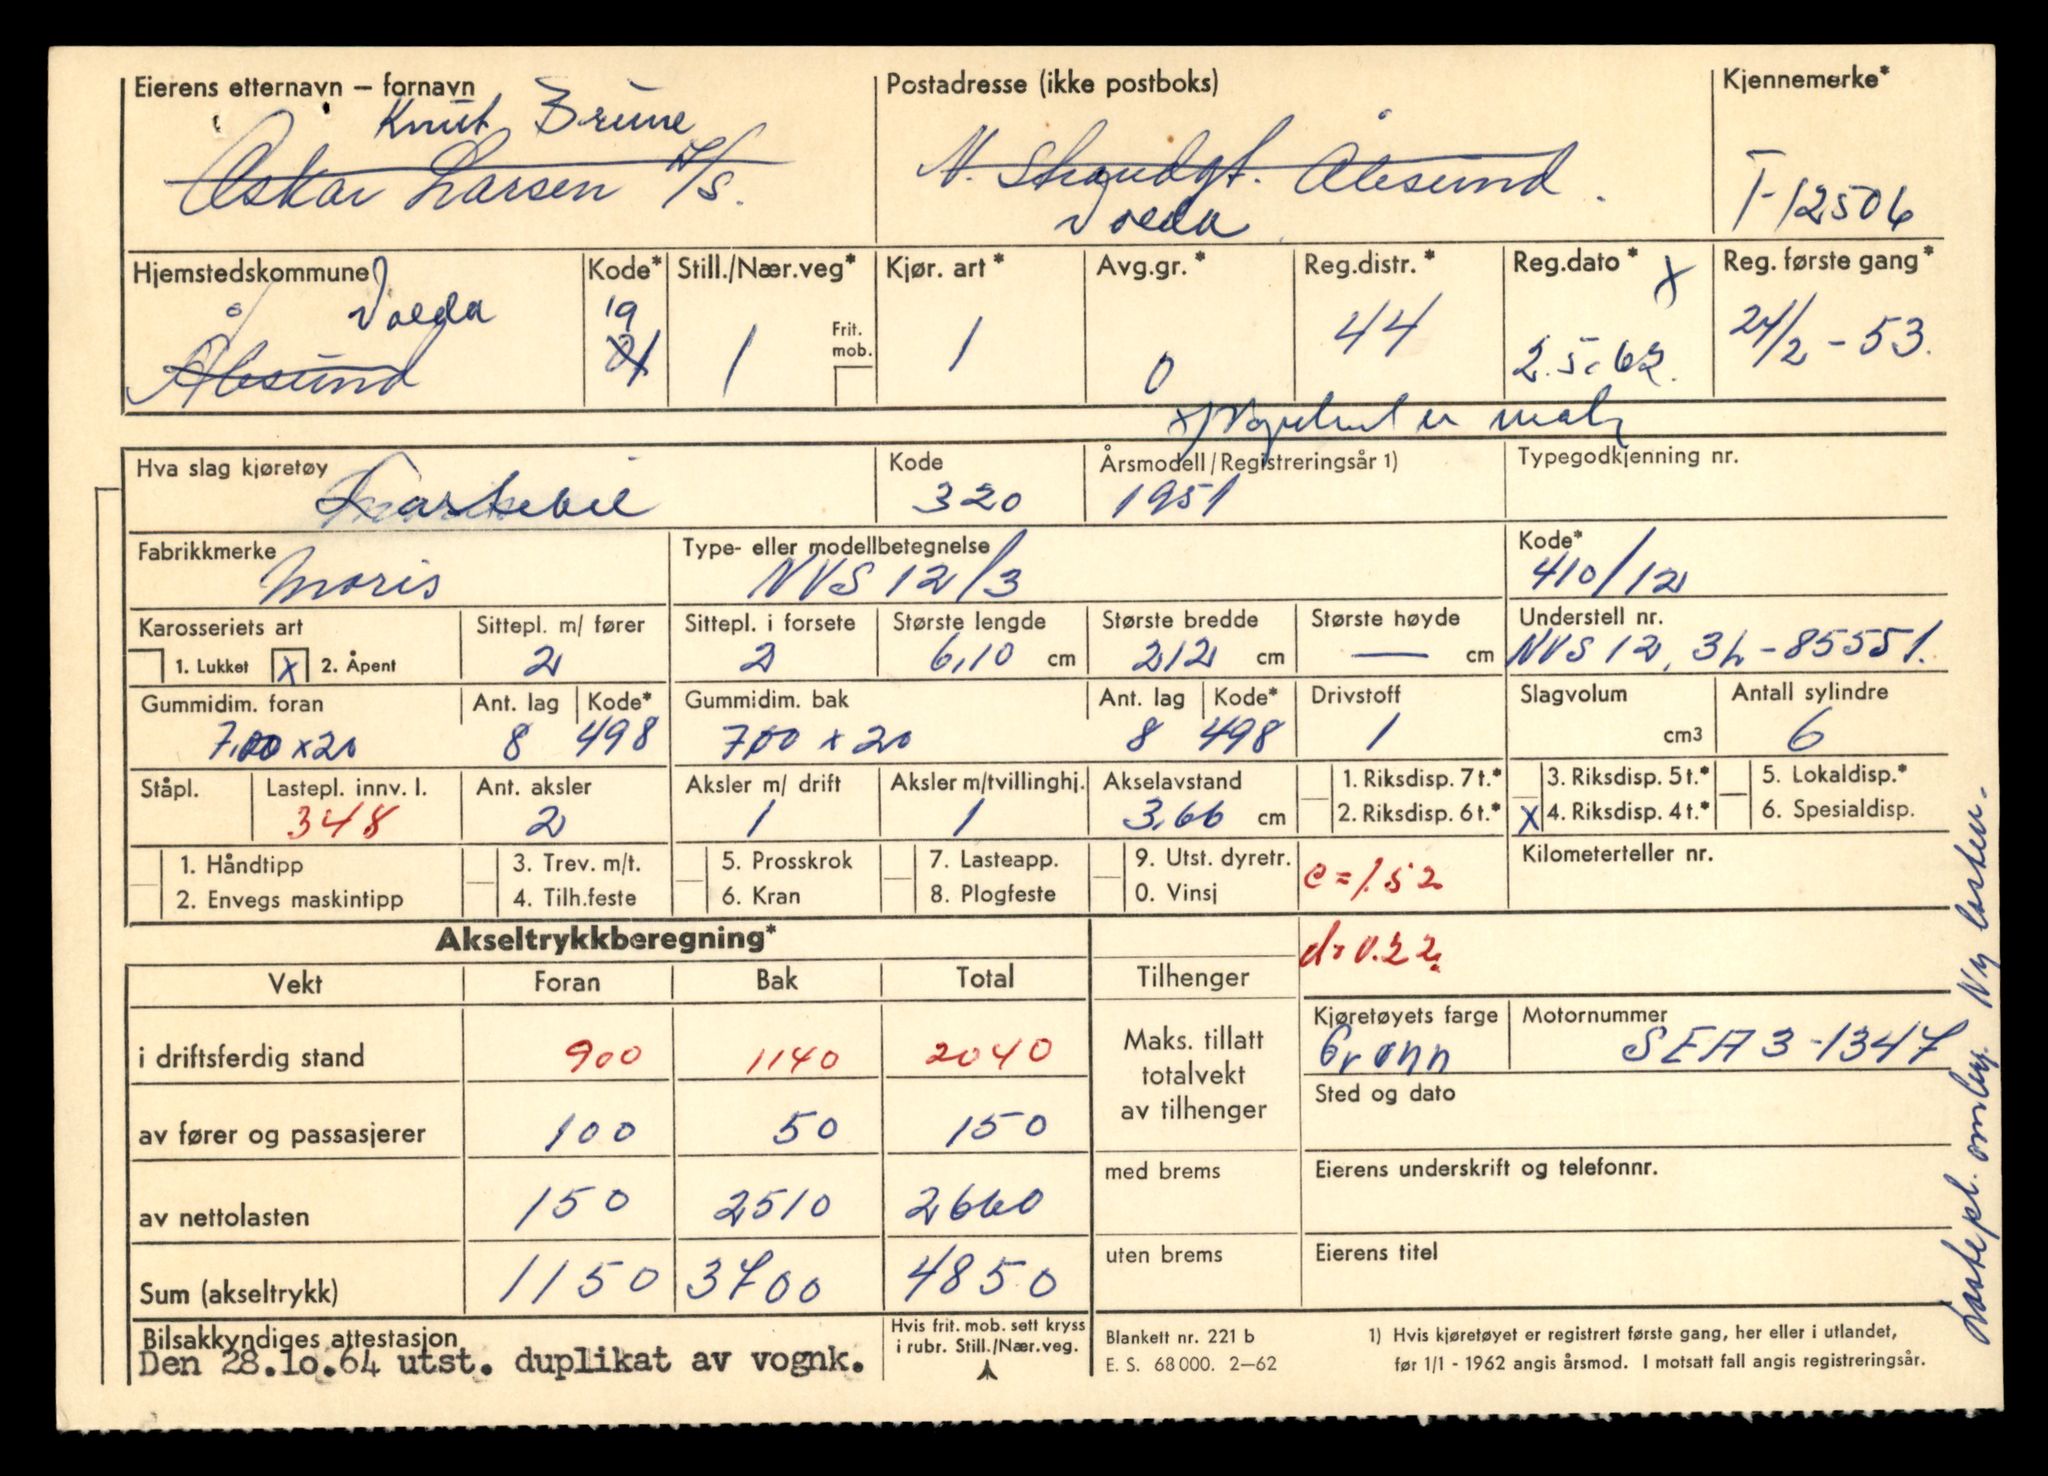 Eierens etternavn – fornavn
Knut Brune
Oskar Larsen A/S.
Postadresse (ikke postboks)
N. Strandgt. Ålesund.
Volda
Kjennemerke*
T-12506
Hjemstedskommune
Volda
Ålesund
Kode*
19
01
Still./Nær.veg*
1
Frit. mob.
Kjør. art*
1
Avg.gr.*
0
Reg.distr.*
44
Reg.dato* x
2.5.62.
Reg. første gang*
24/2 – 53.
x) er
Hva slag kjøretøy
Lastebil
Kode
320
Årsmodell/Registreringsår 1)
1951
Typegodkjenning nr.
Fabrikkmerke
Moris
Type- eller modellbetegnelse
NVS 12/3
Kode*
410/12
Karosseriets art
1. Lukket x 2. Åpent
Sittepl. m/ fører
2
Sittepl. i forsete
2
Største lengde
6,10 cm
Største bredde
212 cm
Største høyde
— cm
Understell nr.
NVS 12, 3L – 85551.
Gummidim. foran
7.00 x 20
Ant. lag
8
Kode*
498
Gummidim. bak
700 x 20
Ant. lag
8
Kode*
498
Drivstoff
1
Slagvolum
cm3
Antall sylindre
6
Ståpl.
Lastepl. innv. l.
348
Ant. aksler
2
Aksler m/ drift
1
Aksler m/tvillinghj.
1
Akselavstand
3,66 cm
1. Riksdisp. 7 t.*
2. Riksdisp. 6 t.*
3. Riksdisp. 5 t.*
x 4. Riksdisp. 4 t.*
5. Lokaldisp.*
6. Spesialdisp.
1. Håndtipp
2. Envegs maskintipp
3. Trev. m/t.
4. Tilh.feste
5. Prosskrok
6. Kran
7. Lasteapp.
8. Plogfeste
9. Utst. dyretr.
0. Vinsj
e = 1.52
Kilometerteller nr.
Akseltrykkberegning*
d= 0.22
Vekt Foran Bak Total
i driftsferdig stand 900 1140 2040
av fører og passasjerer 100 50 150
av nettolasten 150 2510 2660
Sum (akseltrykk) 1150 3700 4850
Tilhenger
Maks. tillatt
totalvekt
av tilhenger
med brems
uten brems
Kjøretøyets farge
Grønn
Motornummer
SEA 3-1347
Sted og dato
Eierens underskrift og telefonnr.
Eierens titel
Bilsakkyndiges attestasjon
Den 28.10.64 utst. duplikat av vognk.
Hvis frit. mob. sett kryss
i rubr. Still./Nær.veg.
Blankett nr. 221 b
E. S. 68 000. 2–62
1) Hvis kjøretøyet er registrert første gang, her eller i utlandet,
før 1/1 - 1962 angis årsmod. I motsatt fall angis registreringsår.
Lastepl. ombyg. Ny lasteev.